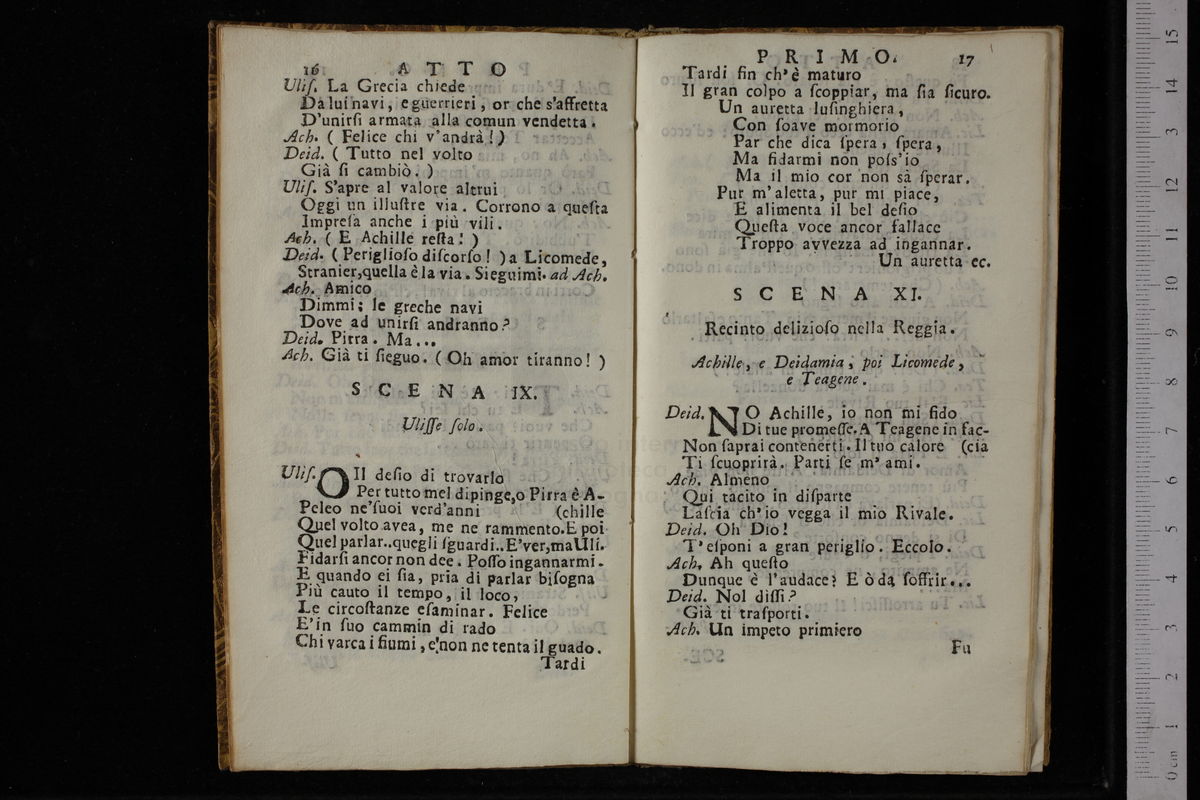 16 ATTO
Uliſ. La Grecia chiede
Da lui navi, e guerrieri, or che s'affretta
D'unirſi armata alla comun vendetta.
Ach. ( Felice chi v'andrà! )
Deid. ( Tutto nel volto
Già ſi cambiò. )
Uliſ. S'apre al valore altrui
Oggi un illuſtre via. Corrono a queſta
Impreſa anche i più vili.
Ach. ( E Achille reſta! )
Deid. ( Periglioſo diſcorſo! ) a Licomede,
Stranier, quella è la via. Sieguimi. ad Ach.
Ach. Amico
Dimmi; le greche navi
Dove ad unirſi andranno?
Deid. Pirra. Ma...
Ach. Già ti ſieguo. ( Oh amor tiranno! )
SCENA IX.
Uliſſe ſolo.
Uliſ. O Il deſio di trovarlo
Per tutto mel dipinge, o Pirra è A-
Peleo ne'ſuoi verd'anni (chille
Quel volto avea, me ne rammento. E poi
Quel parlar.. quegli ſguardi.. E'ver, ma Uli.
Fidarſi ancor non dee. Poſſo ingannarmi.
E quando ei ſia, pria di parlar biſogna
Più cauto il tempo, il loco,
Le circoſtanze eſaminar. Felice
E'in ſuo cammin di rado
Chi varca i fiumi, e non ne tenta il guado.
Tardi
PRIMO. 17
Tardi fin ch'è maturo
Il gran colpo a ſcoppiar, ma ſia ſicuro.
Un auretta luſinghiera,
Con ſoave mormorio
Par che dica ſpera, ſpera,
Ma fidarmi non poſs'io
Ma il mio cor non sà ſperar.
Pur m'aletta, pur mi piace,
E alimenta il bel deſio
Queſta voce ancor fallace
Troppo avvezza ad ingannar.
Un auretta ec.
SCENA XI.
Recinto delizioſo nella Reggia.
Achille, e Deidamia, poi Licomede,
e Teagene.
Deid. NO Achille, io non mi fido
Di tue promeſſe. A Teagene in fac-
Non ſaprai contenerti. Il tuo calore (cia
Ti ſcuoprirà. Parti ſe m'ami.
Ach. Almeno
Qui tacito in diſparte
Laſcia ch'io vegga il mio Rivale.
Deid. Oh Dio!
T'eſponi a gran periglio. Eccolo.
Ach. Ah queſto
Dunque è l'audace? E ò da ſoffrir...
Deid. Nol diſſi?
Già ti traſporti.
Ach. Un impeto primiero
Fu
0 cm 1 2 3 4 5 6 7 8 9 10 11 12 13 14 15